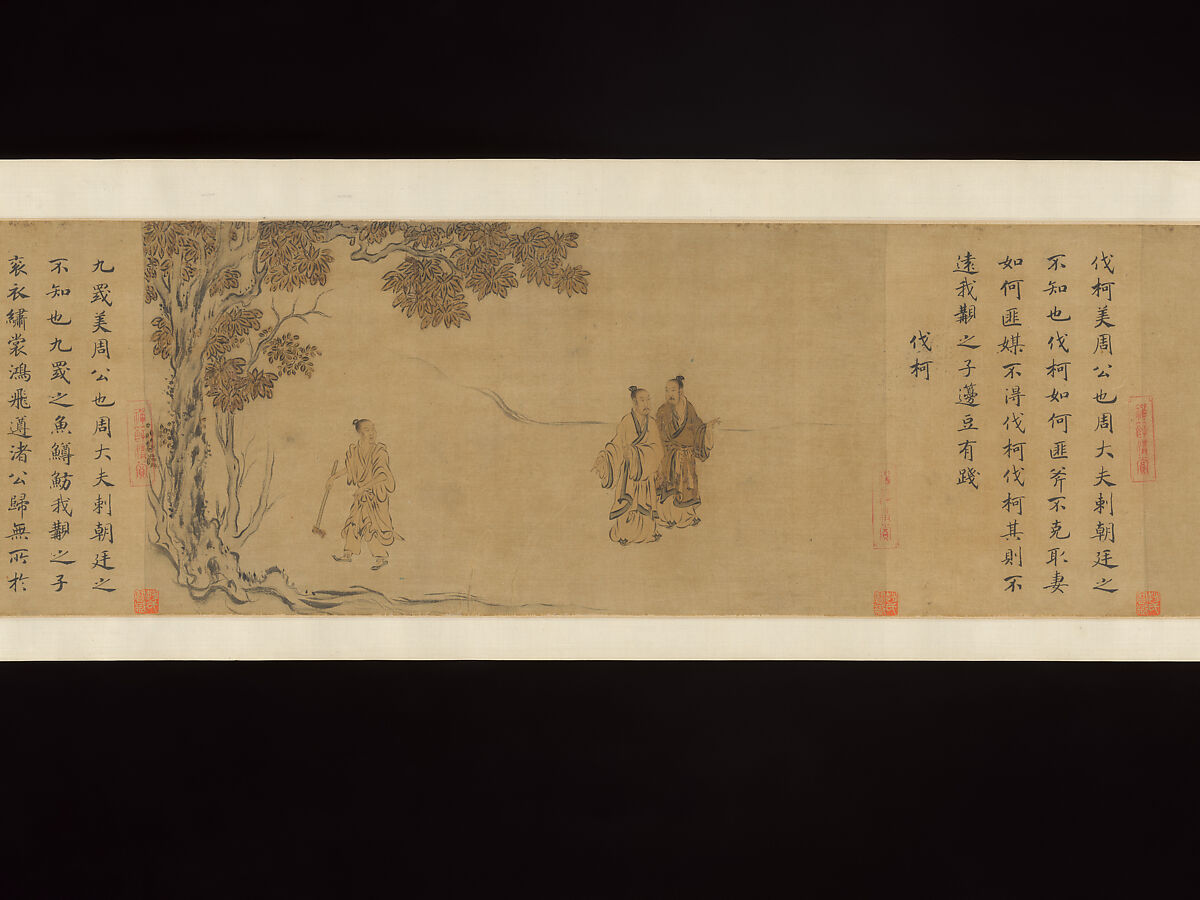 伐柯美周公也周大夫刺朝廷之
不知也伐柯如何匪斧不克取妻
如何匪媒不得伐柯伐柯其則不
遠我覯之子籩豆有踐
伐柯
九罭美周公也周大夫刺朝廷之
不知也九罭之魚鱒魴我覯之子
袞衣繡裳鴻飛遵渚公歸無所於